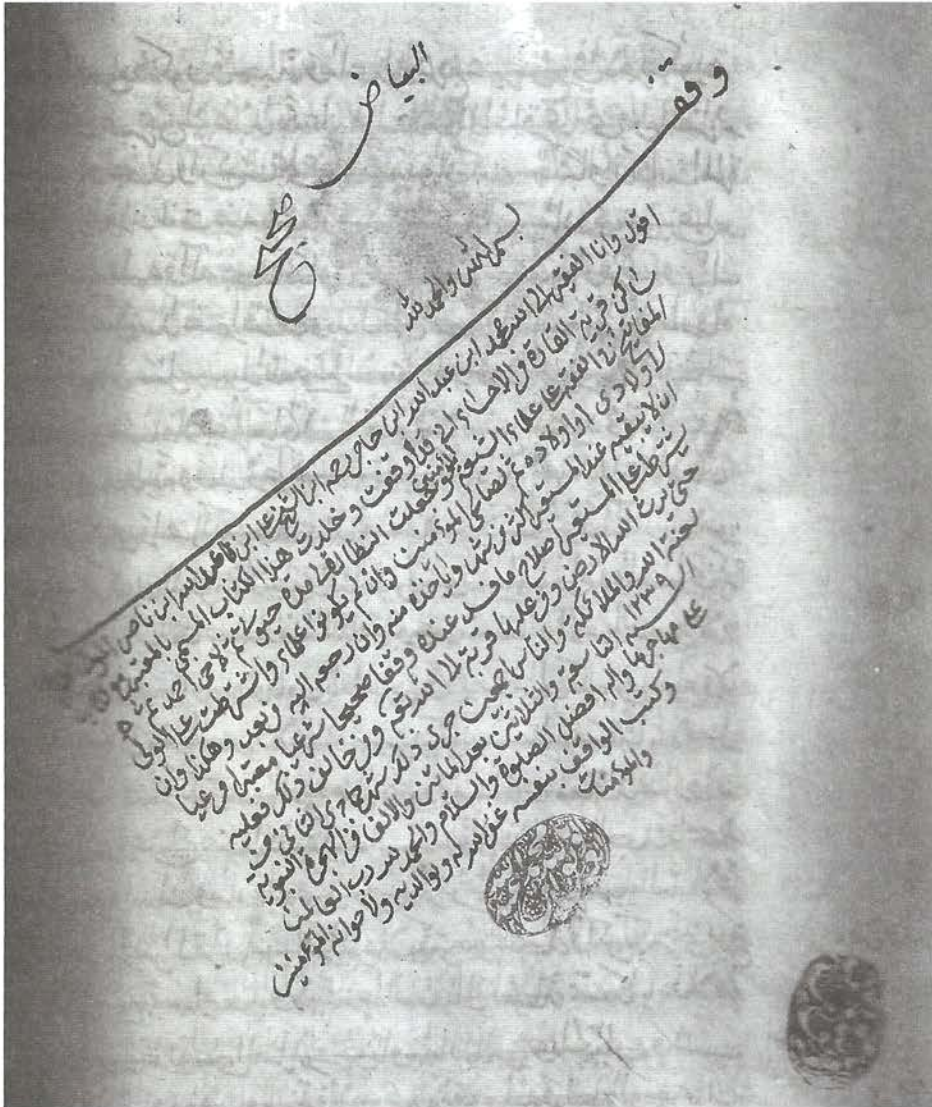 وقف
البياض صحيح
بسم الله والحمد لله
اقول وانا الفقير الى الله محمد ابن عبد الله ابن حاجي ابن الشيخ علي ابن عبد الله ابن ناصر
ساكن قرية القارة في الاحساء اني قد اوقفت وخلدت هذا الكتاب المسمى بالمعتبر
المفاتيح في الفقه على علماء الشيعة وجعلت النظارة مدة حيوتي ثم لاخي احمد ثم
لاولادي او اولاده ثم لصالحي المؤمنين وان لم يكونوا علماء واشترطت على الولي
ان لا يبقيه عند المستعير اكثر من شهر وياخذه منه وان رجعه اليه من بعد وهكذا وان
يشترط على المستعير صلاح ما فسد عنده وقفا صحيحا شرعيا معتبرا مرعيا
حتى يرث الله الارض ومن عليها قربة لله تعالى ومن خالف ذلك فعليه
لعنة الله والملائكة والناس اجمعين جرى ذلك شهر جمادى الثاني من
السنة ١٢٣٩ التاسعة والثلاثين بعد المائتين والالف من الهجرة النبوية
على مهاجرها واله افضل الصلوة والسلام والحمد لله رب العالمين
وكتب الواقف بنفسه غفر الله له ولوالديه ولاخوانه المؤمنين
والمؤمنات